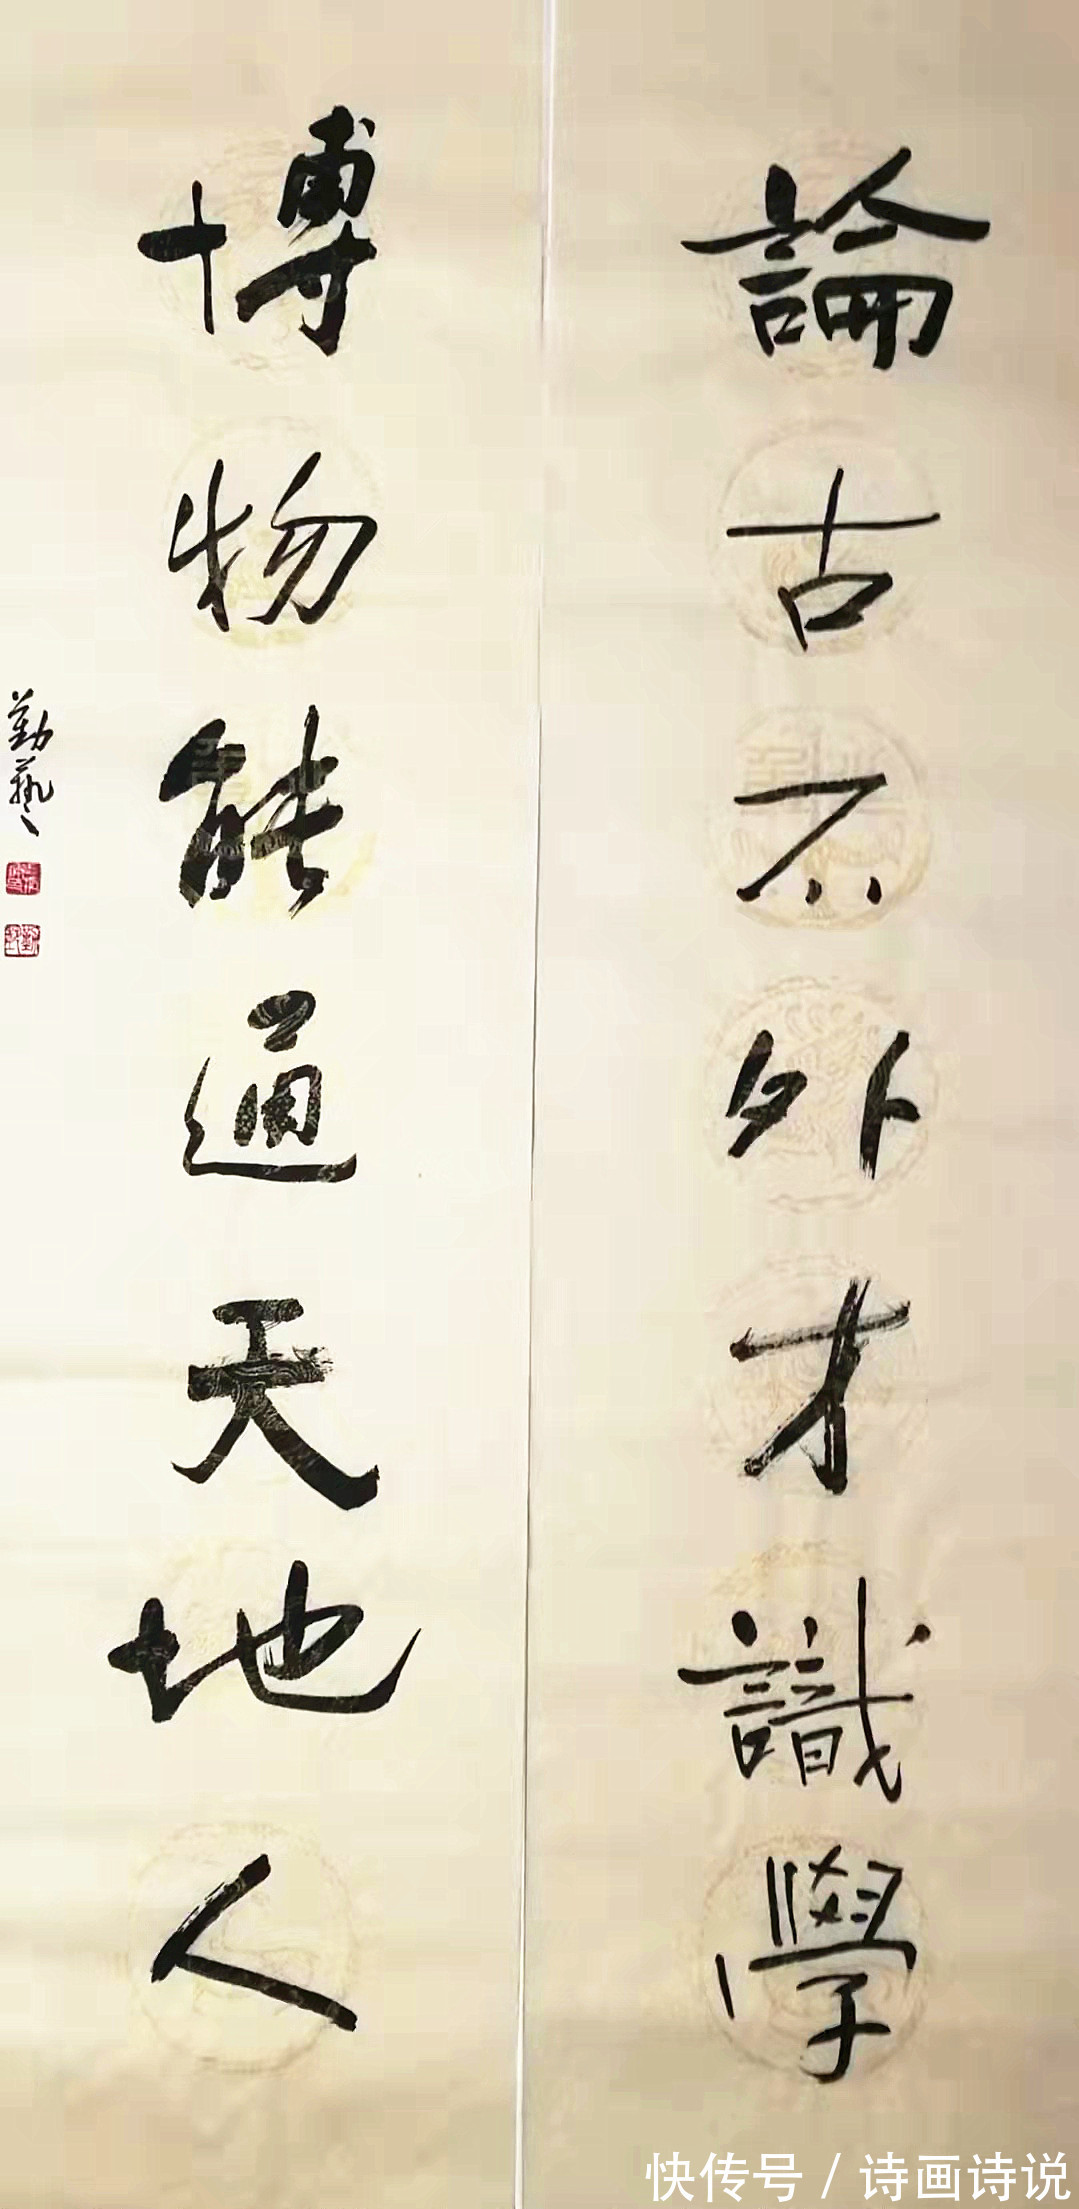 論古不外才識學
博物能通天地人
勤藝
快传号 / 诗画诗说